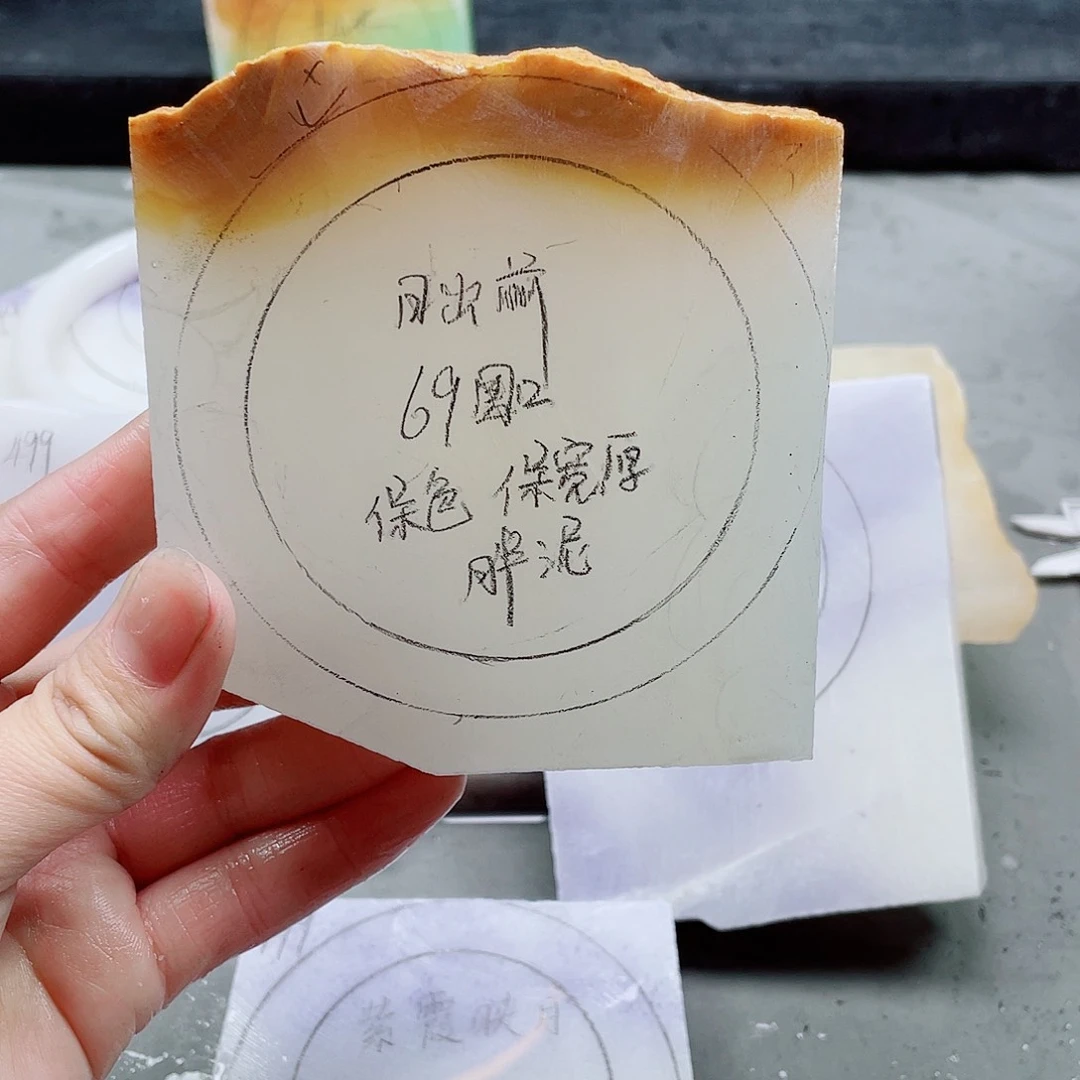 日出前
69圈口
保色 保宽厚
胖泥
499
紫霞映月